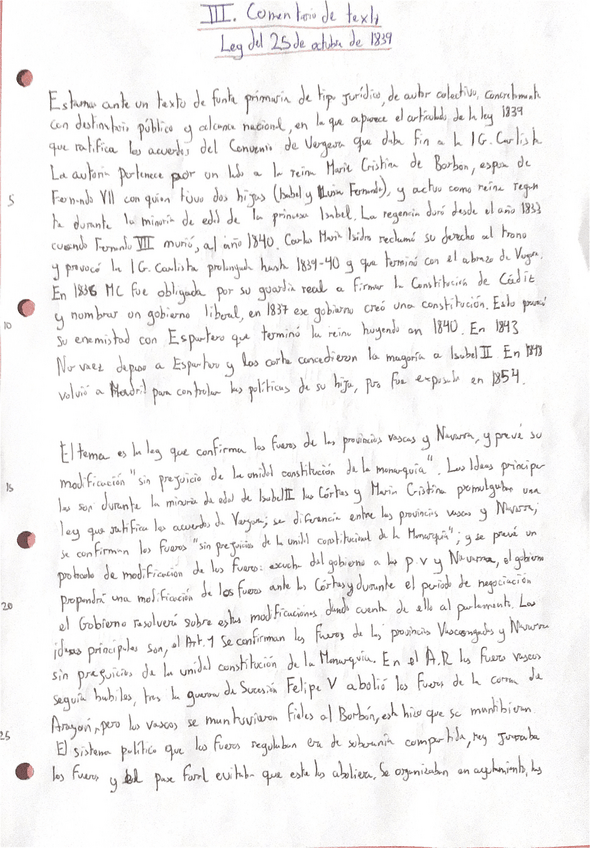 III. Comentario de texto
Ley del 25 de octubre de 1839
Estamos ante un texto de fuente primaria de tipo jurídico, de autor colectivo, concretamente
con destinatario público y alcance nacional, en la que aparece el articulado de la ley 1839
que ratifica los acuerdos del Convenio de Vergara que daba fin a la I G. Carlista
La autoría pertenece por un lado a la reina María Cristina de Borbón, esposa de
5
Fernando VII con quien tuvo dos hijas (Isabel y Luisa Fernanda), y actuo como reina regen
te durante la minoría de edad de la princesa Isabel. La regencia duró desde el año 1833
cuando Fernando VII murió, al año 1840. Carlos María Isidro reclamó su derecho al trono
y provocó la I G. Caulista prolongada hasta 1839-40 y que terminó con el abrazo de Vergara.
En 1836 MC fue obligada por su guardia real a firmar la Constitución de Cádiz
10
y nombrar un gobierno liberal, en 1837 ese gobierno creó una constitución. Esto provocó
su enemistad con Espartero que terminó la reina huyendo en 1840. En 1843
Narvaez depuso a Espartero y las cortes concedieron la mayoría a Isabel II. En
volvió a Madrid para controlar las políticas de su hija, pero fue expulsada en 1854.
El tema es la ley que confirma los fueros de las provincias vascas y Navarra, y prevé su
15
modificación "sin prejuicio de la unidad constitución de la monarquía". Las Ideas principa
les son durante la minoría de edad de Isabel II las Córtes y Maria Cristina promulgaban una
ley que ratifica los acuerdos de Vergara; se diferencia entre las provincias vascas y Navarra;
se confirman los fueros "sin prejuicios de la unidad constitucional de la Monarquía"; y se prevé un
de modificación de los fueros: escucha del gobierno a las p.v y Navarra, el gobierno
20
propondrá una modificación de los fueros ante las Córtes y durante el periodo de negociación
el Gobierno resolverá sobre estas modificaciones dando cuenta de ello al parlamento. Las
ideas principales son, el Art. 1 se confirman los fueros de las provincias Vascongadas y Navarra
sin prejuicios de la unidad constitución de la Monarquía. En el A.R los fueros vascos
seguía habiles, tras la guerra de Sucesión Felipe V abolió los Fueros de la corona de
25
Aragón, pero los vascos se mantuvieron fieles al Borbón, esto hizo que se mantubieran
El sistema político que los fueros regulaban era de soberanía compartida, rey Juraba
los fueros y el pase foral evitaba que este los aboliera. Se organizaban en ayuntamiento, las